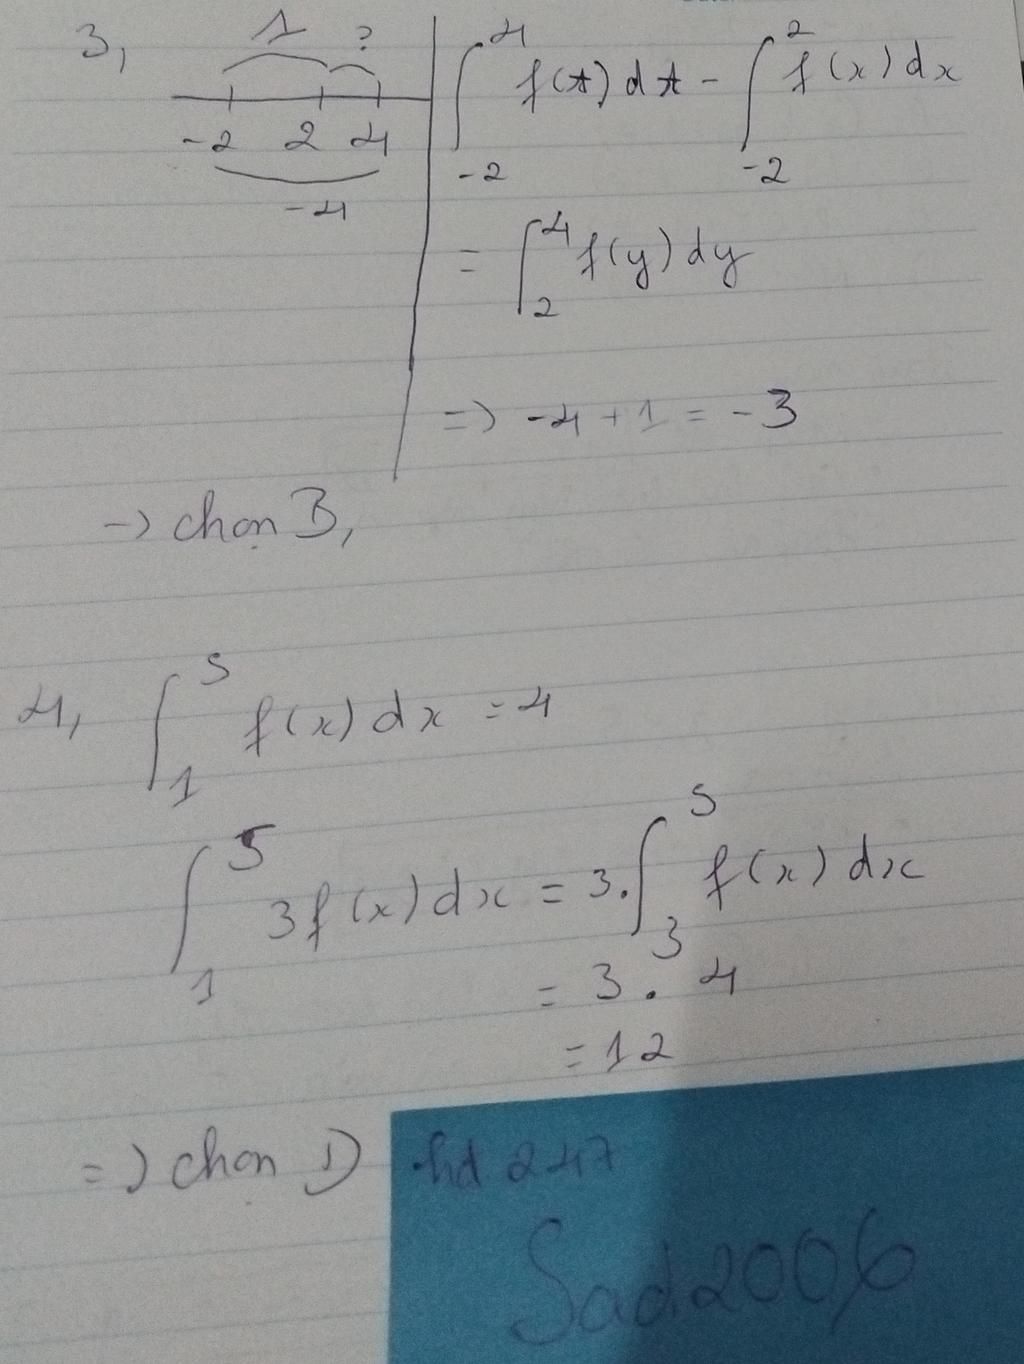 3,
1 ?
-2 2 4
-4
∫_{-2}^{4} f(t)dt - ∫_{-2}^{2} f(x)dx
= ∫_{2}^{4} f(y)dy
=> -4 + 1 = -3
-> chọn B,
4, ∫_{1}^{5} f(x)dx = 4
∫_{1}^{5} 3f(x)dx = 3.∫_{3}^{5} f(x)dx
= 3 . 4
= 12
=> chọn D
hd 247
Sad2006